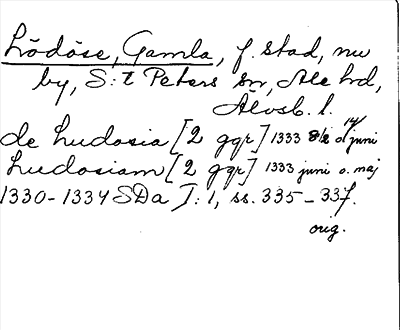 Lödöse, Gamla, f. stad, nu
by, S:t Peters sn, Ale hd,
Älvsb. l.
de Ludosia [2 ggr] 1333 8/2 o. 14/ juni
Ludosiam [2 ggr] 1333 juni o. maj
1330-1334 SDa I:1, ss. 335-337.
orig.